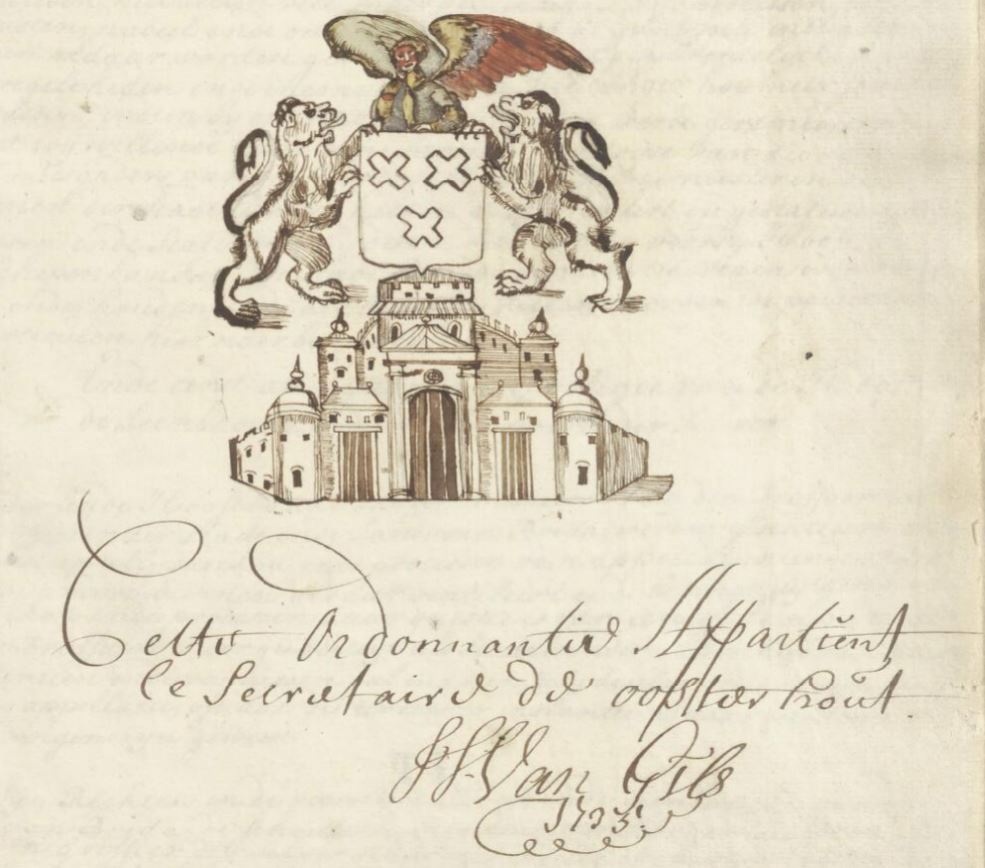 Cette Ordonnantie Appartient
le Secretaire de oosterhout
Van Gils